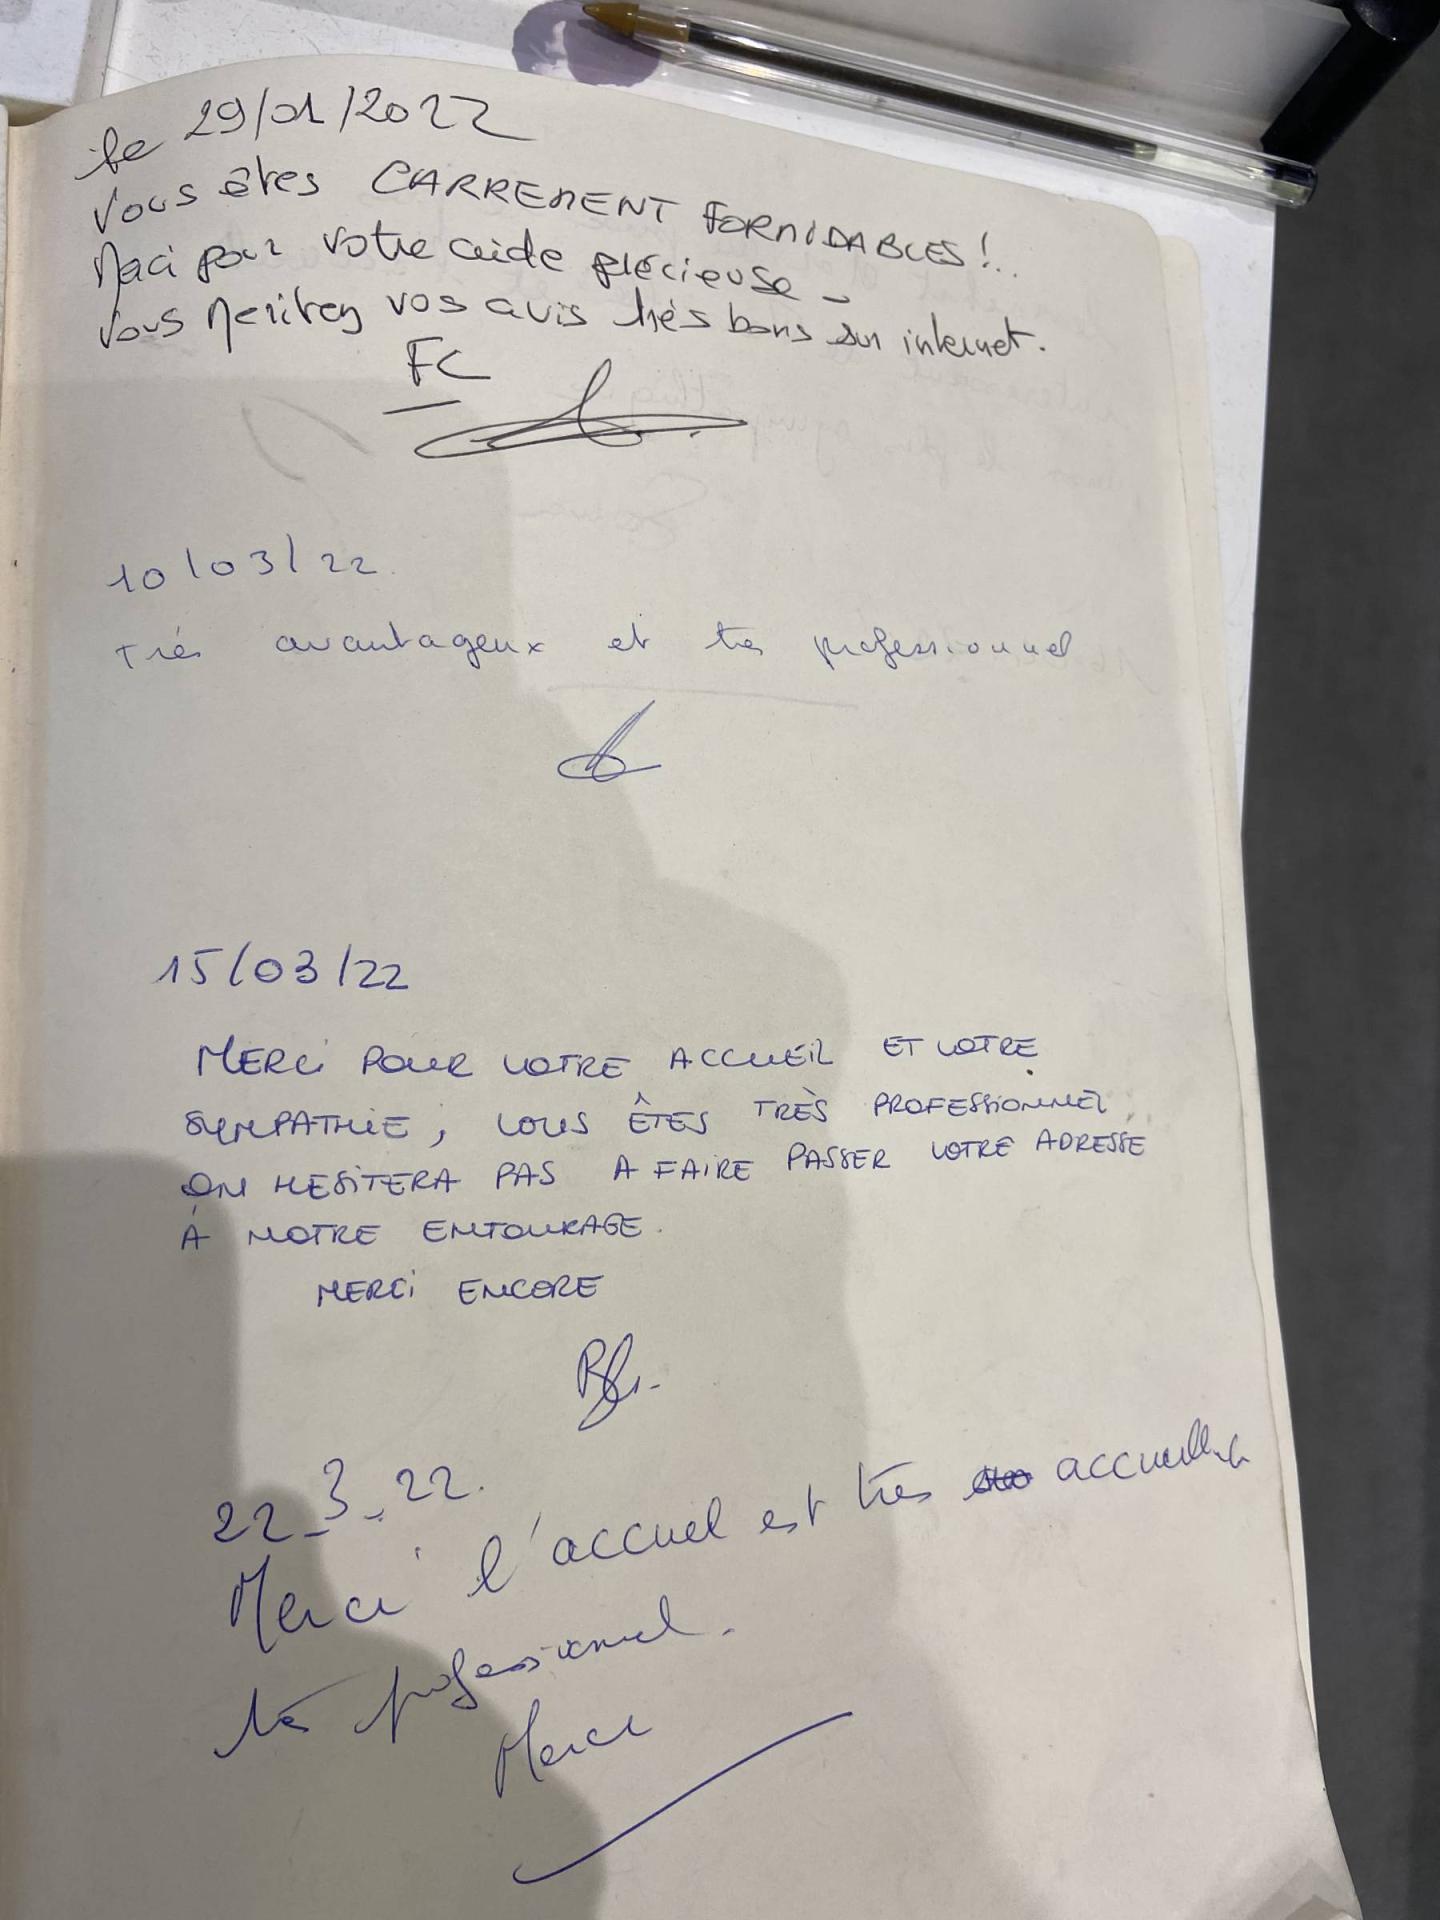 le 29/01/2022
Vous êtes CARREMENT FORMIDABLES !..
Merci pour votre aide précieuse -
Vous Meritez vos avis très bons sur internet.
FC
10/03/22.
Très avantageux et tres professionnel
15/03/22
MERCi POUR VOTRE ACCUEIL ET VOTRE
SYMPATHIE, VOUS ÊTES TRÈS PROFESSIONNEL
ON HESITERA PAS A FAIRE PASSER VOTRE ADRESSE
À NOTRE ENTOURAGE.
MERCi ENCORE
22_3_22.
Merci l'accuel est très
très professionnel.
Merci